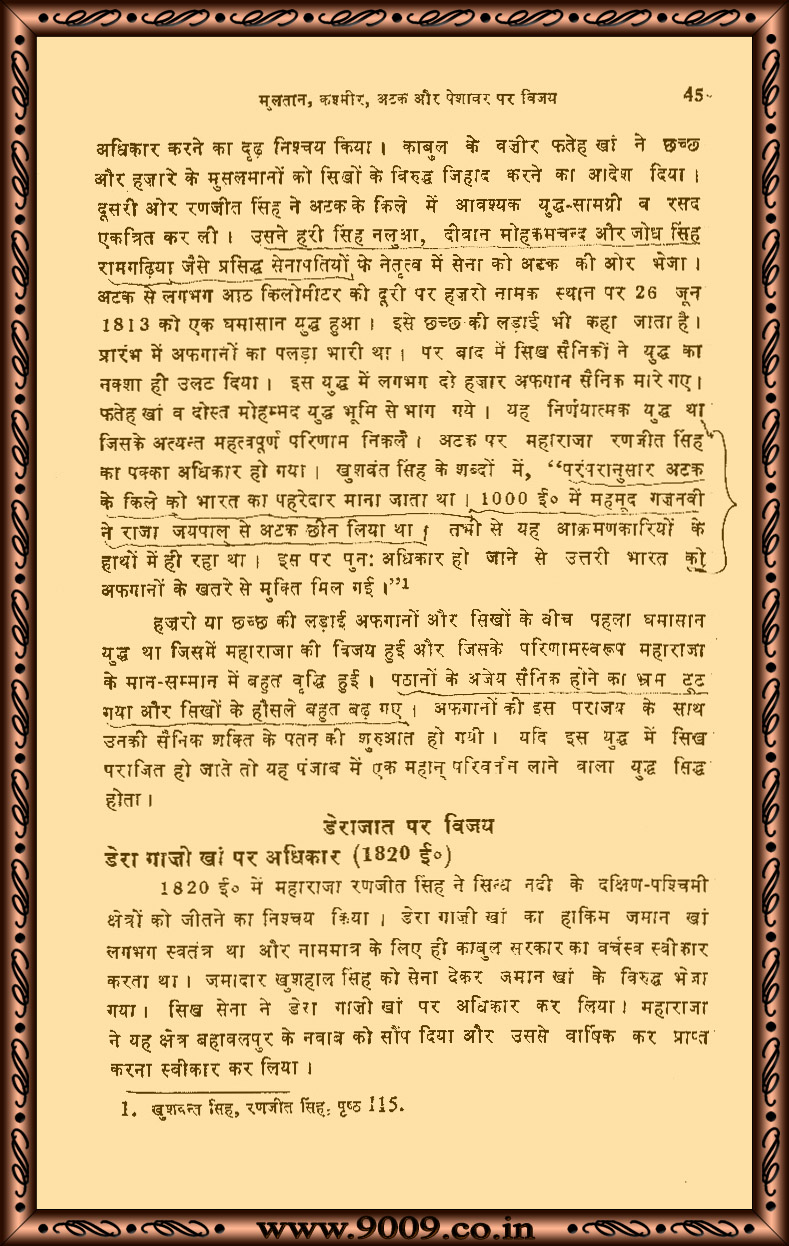 मुलतान, कश्मीर, अटक और पेशावर पर विजय 45
अधिकार करने का दृढ़ निश्चय किया। काबुल के वज़ीर फतेह खां ने छच्छ
और हज़ारे के मुसलमानों को सिखों के विरुद्ध जिहाद करने का आदेश दिया।
दूसरी ओर रणजीत सिंह ने अटक के किले में आवश्यक युद्ध-सामग्री व रसद
एकत्रित कर ली। उसने हरी सिंह नलुआ, दीवान मोहकमचन्द और जोध सिंह
रामगढ़िया जैसे प्रसिद्ध सेनापतियों के नेतृत्व में सेना को अटक की ओर भेजा।
अटक से लगभग आठ किलोमीटर की दूरी पर हज़रो नामक स्थान पर 26 जून
1813 को एक घमासान युद्ध हुआ। इसे छच्छ की लड़ाई भी कहा जाता है।
प्रारंभ में अफगानों का पलड़ा भारी था। पर बाद में सिख सैनिकों ने युद्ध का
नक्शा ही उलट दिया। इस युद्ध में लगभग दो हज़ार अफगान सैनिक मारे गए।
फतेह खां व दोस्त मोहम्मद युद्ध भूमि से भाग गये। यह निर्णयात्मक युद्ध था
जिसके अत्यन्त महत्वपूर्ण परिणाम निकले। अटक पर महाराजा रणजीत सिंह
का पक्का अधिकार हो गया। खुशवंत सिंह के शब्दों में, “परंपरानुसार अटक
के किले को भारत का पहरेदार माना जाता था। 1000 ई० में महमूद गज़नवी
ने राजा जयपाल से अटक छीन लिया था। तभी से यह आक्रमणकारियों के
हाथों में ही रहा था। इस पर पुन: अधिकार हो जाने से उत्तरी भारत को
अफगानों के खतरे से मुक्ति मिल गई।”1
हज़रो या छच्छ की लड़ाई अफगानों और सिखों के बीच पहला घमासान
युद्ध था जिसमें महाराजा की विजय हुई और जिसके परिणामस्वरूप महाराजा
के मान-सम्मान में बहुत वृद्धि हुई। पठानों के अजेय सैनिक होने का भ्रम टूट
गया और सिखों के हौसले बहुत बढ़ गए। अफगानों की इस पराजय के साथ
उनकी सैनिक शक्ति के पतन की शुरुआत हो गयी। यदि इस युद्ध में सिख
पराजित हो जाते तो यह पंजाब में एक महान् परिवर्तन लाने वाला युद्ध सिद्ध
होता।
डेराजात पर विजय
डेरा गाज़ी खां पर अधिकार (1820 ई०)
1820 ई० में महाराजा रणजीत सिंह ने सिन्ध नदी के दक्षिण-पश्चिमी
क्षेत्रों को जीतने का निश्चय किया। डेरा गाज़ी खां का हाकिम जमान खां
लगभग स्वतंत्र था और नाममात्र के लिए ही काबुल सरकार का वर्चस्व स्वीकार
करता था। जमादार खुशहाल सिंह को सेना देकर जमान खां के विरुद्ध भेजा
गया। सिख सेना ने डेरा गाज़ी खां पर अधिकार कर लिया। महाराजा
ने यह क्षेत्र बहावलपुर के नवाब को सौंप दिया और उससे वार्षिक कर प्राप्त
करना स्वीकार कर लिया।
1. खुशवन्त सिंह, रणजीत सिंह: पृष्ठ 115.
www.9009.co.in